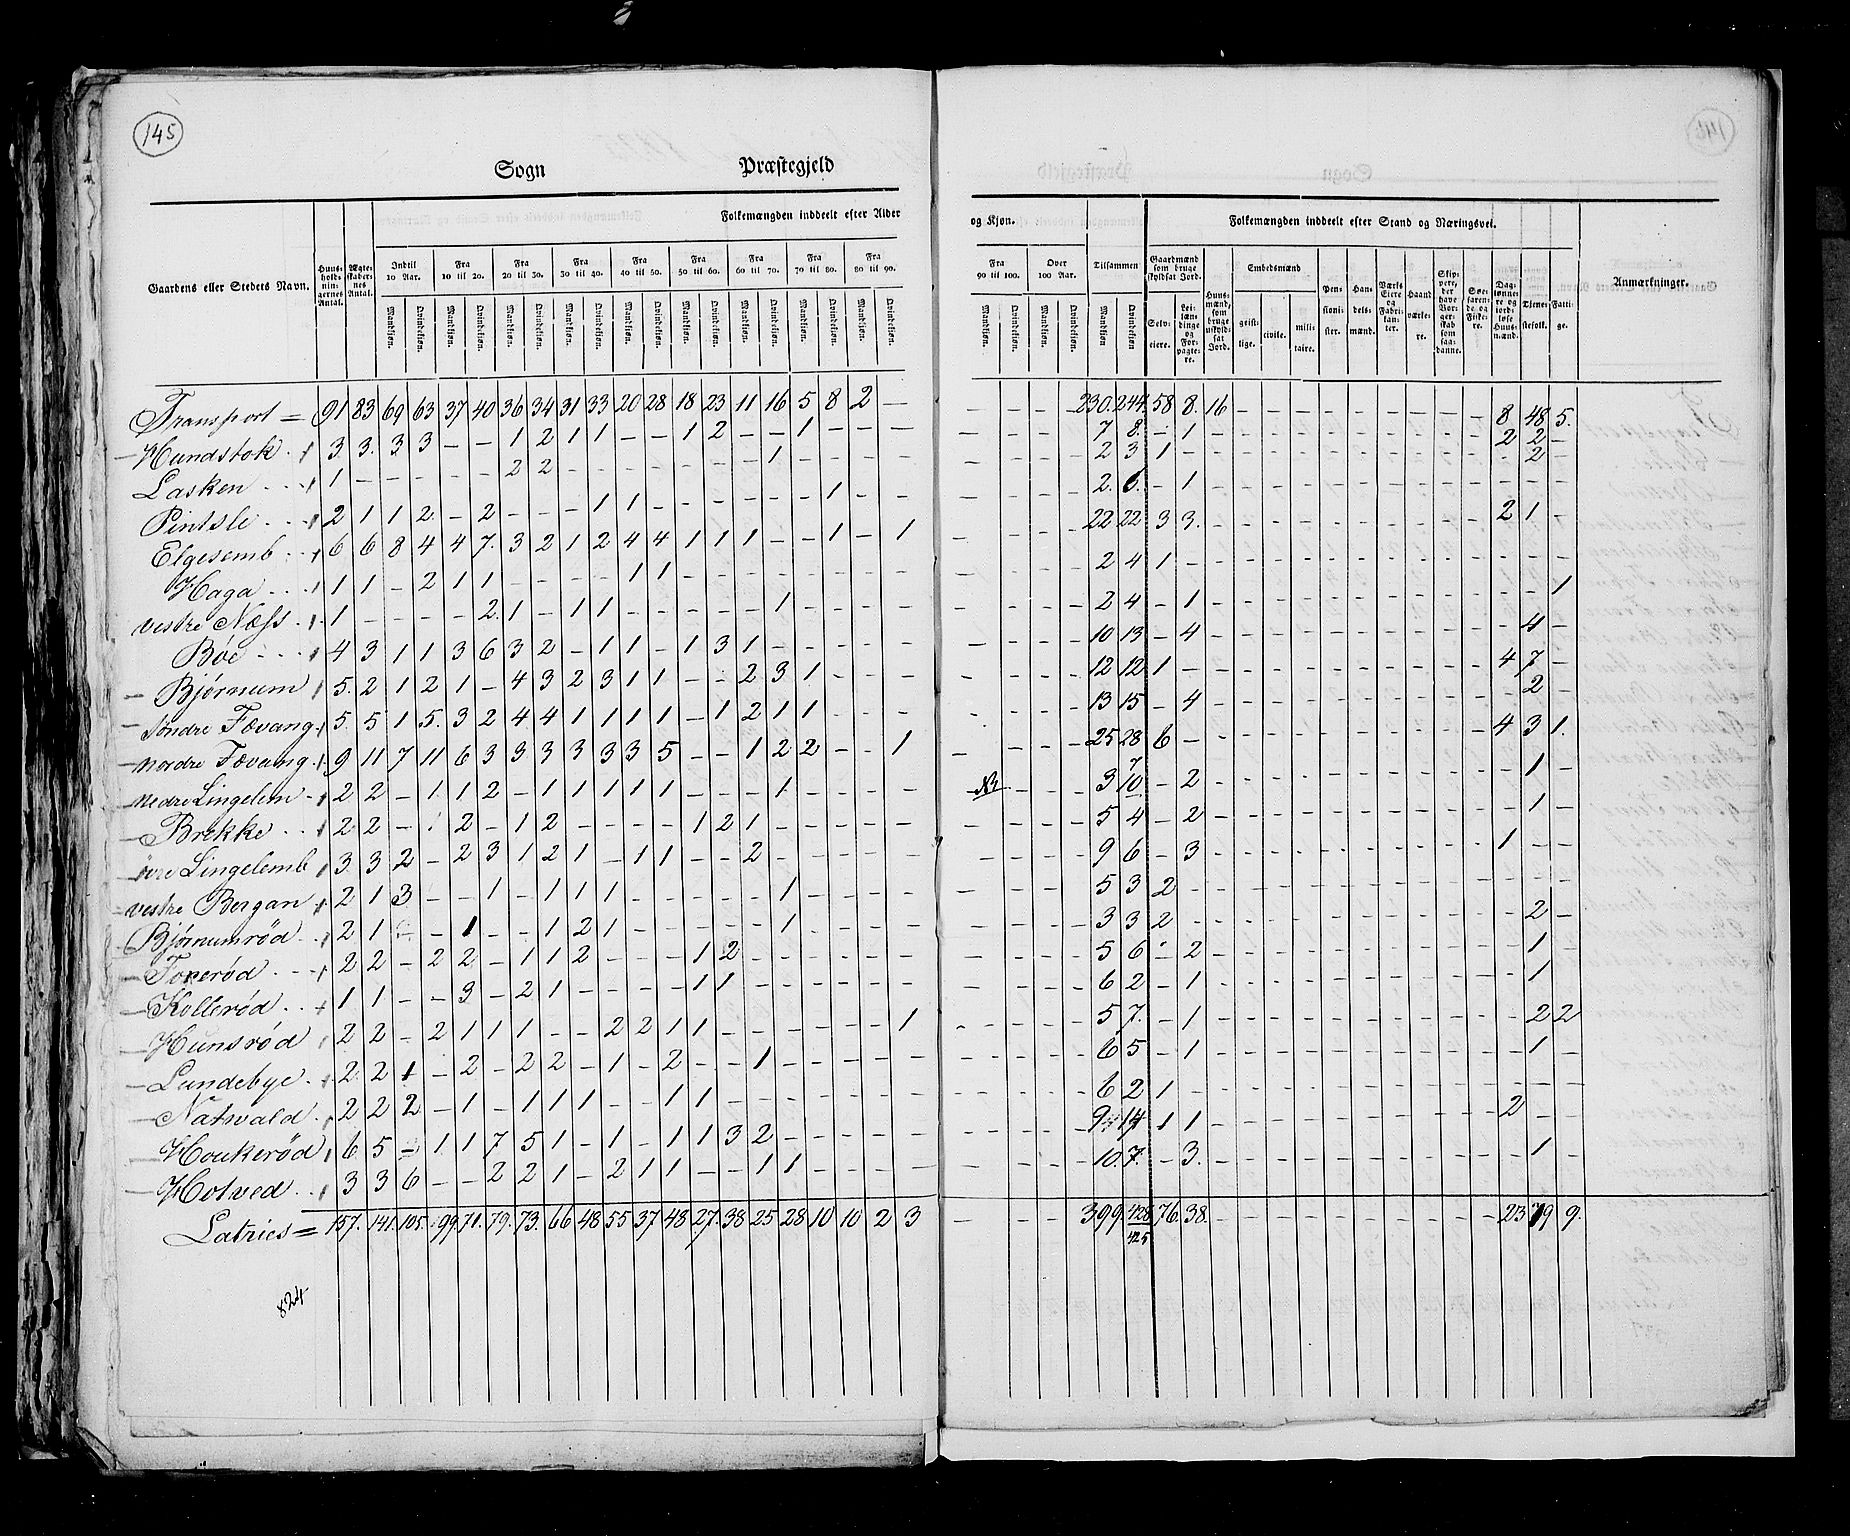 145
Sogn Præstegjeld
Folkemængden inddeelt efter Alder
og Kjøn.
Folkemængden inddeelt efter Stand og Næringsvei.
Gaardens eller Stedets Navn.
Huusholdningernes Antal.
Ægteskabernes Antal.
Indtil 10 Aar.
Fra 10 til 20.
Fra 20 til 30.
Fra 30 til 40.
Fra 40 til 50.
Fra 50 til 60.
Fra 60 til 70.
Fra 70 til 80.
Fra 80 til 90.
Fra 90 til 100.
Over 100 Aar.
Tilsammen
Mandkjøn. Qvindekjøn.
Gaardmænd som bruge skyldsat Jord.
Selveiere.
Leilændinge og Forpagtere.
Huusmænd, som bruge uskyldsat Jord.
Embedsmænd
geistlige.
civile.
militaire.
Pensionister.
Handelsmænd.
Værks Eiere og Fabrikanter.
Haandværkere.
Skippere, der have Borgerskab som saadanne.
Søefarende og Fiskere.
Daglønnere og jordløse Huusmænd.
Tjenestefolk.
Fattige.
Anmærkninger.
Transport = 91 83 69 63 37 40 36 34 31 33 20 28 18 23 11 16 5 8 2 — — — — — 230. 244. 58 8. 16 — — — — — — — — — 8 48 5.
Hundstok 3 3. 3 3 — — 1 2 1 1 — — 1 2 — — 1 — — — — — — — 7 8. — 1 — — — — — — — — — — 2 2 —
Lasken 1 — — — — — 2 2 — — — — — — — 1 — — — — — — — — 2 3 1 — — — — — — — — — — — — 2 —
Pintsle 2 1 1 2 — 2 — — — 1 1 — — — — — — 1 — — — — — — 2. 6. — 1 — — — — — — — — — — — — —
Elgesemb 6 6 8 4 4 7. 3 2 1 2 4 4 1 1 1 — — 1 — 1 — — — — 22 22 3 3. — — — — — — — — — — 2 1 —
Haga 1 1 — 2 1 1 — — — — 1 1 — — — — — — — — — — — — 2 4 1 — — — — — — — — — — — — — —
vestre Næss 1 — — — — 2 1 — 1 1 — — — — — 1 — — — — — — — — 2 4 — 1 — — — — — — — — — — — — 1
Bøe 4 3 1 1 3 6 3 2 — 1 1 — 1 3 1 — — — — — — — — — 10 13 — 4 — — — — — — — — — — — 4 —
Bjørnum 5. 2 1 2 1 — 4 3 2 3 1 1 — — 2 3 1 — — — — — — — 12 12 1 — — — — — — — — — — — 4 7 —
søndre Fævang 5. 5 1 5. 3 2 4 4 1 1 1 1 — 1 2 1 1 — — — — — — — 13 15 — 4 — — — — — — — — — — — 2 —
nordre Fævang 9 11 7 11 6 3 3 3 3 3 3 5 — — 1 2 2 — — 1 — — — — 25 28 6 — — — — — — — — — — — 4 3 1.
nedre Lingelem 2 2 — 1 1 2 — 1 1 1 1 1 — — — 1 — — — — — — — 3 7 10 — 2 — — — — — — — — — — — 1 —
Brekke 2 2 — 1 2 — 1 2 — — — — 1 2 1 — — — — — — — — — 5 4 — 2 — — — — — — — — — — — 1 —
øvre Lingelemb 3. 3 2 — 2 3 1 2 1 — 1 1 — — 2 — — — — — — — — — 9 6 — 3 — — — — — — — — — — 1 — —
vestre Bergan 2 1 3 — — 1 — 1 1 1 — — — — — 1 — — — — — — — — 5 3 2 — — — — — — — — — — — — — —
Bjørnumrød 2 1 — 1 — — 1 2 1 — — — — — 1 — — — — — — — — 3 3 2 — — — — — — — — — — — — 2 —
Foxerød 2 2 — 2 2 — 1 1 2 — — — 1 2 — — — — — — — — — — 5 6 — 2 — — — — — — — — — — — 1 —
Kollerød 1 1 — — 3 — 2 1 — — — — 1 1 — — — — — — — — — — 6 2 — 1 — — — — — — — — — — — 1 —
Hunsrød 2 2 — 2 1 1 1 — — 2 2 1 1 — — — — — — 1 — — — — 5 7. — 1 — — — — — — — — — — — 2 2
Lundebye 2. 2 1 — 2 — 2 2 — 1 — 2 — — 1 — — — — — — — — — 6 5 — 1 — — — — — — — — — — — 1 —
Natvald 2 2 2 — 1 — 1 1 1 — — 1 1 — — — — — — — — — — — 6 2 1 — — — — — — — — — — — — — —
Houkerød 6 5 — 1 1 7 5 1 — 1 — 1 1 3 2 — — — — — — — — — 9 14 1 1 — — — — — — — — — — 2 — —
Hotved 3 3 6 — — 2 2 1 — 2 1 1 — — 1 1 — — — — — — — — 10. 7. — 3. — — — — — — — — — — — 1 —
Latries = 157. 141. 105. 99 71. 79. 73. 66 48 55 37 48 27. 38 25 28 10 10 2 3 — — — — 399. 428 76. 38. — — — — — — — — — — 23 79 9.
425
824